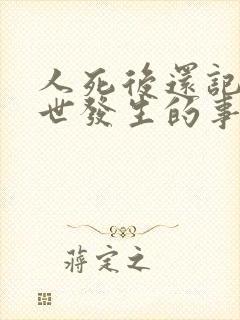 人死後還記
世發生的事
蔣定之